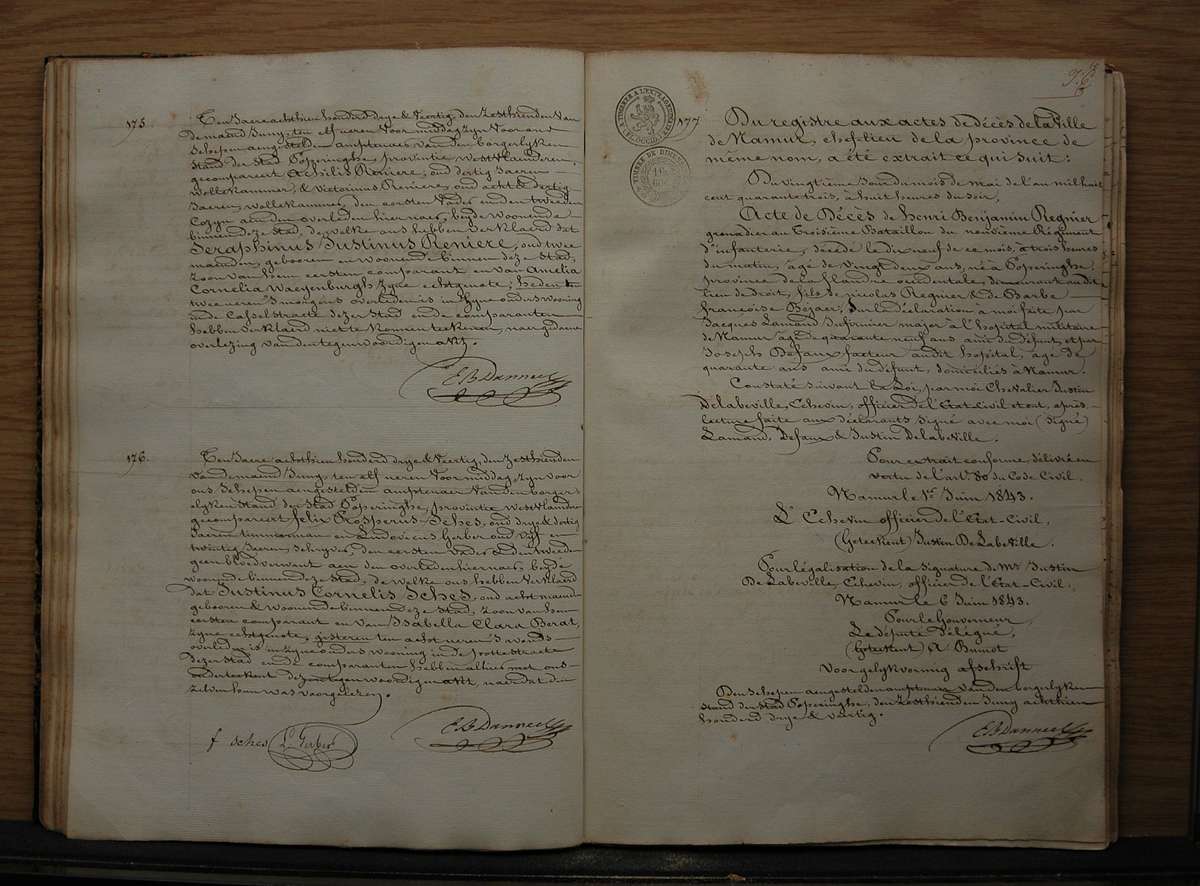 175
Ten Jaere achthien honderd drye & Veertig, den Zesthienden van
de maend Juny, ten elf ueren voor middag zyn voor ons
Schepen aengestelden amptenaer van den borgerlyken
Stand der Stad Poperinghe, provintie Westvlaenderen,
gecompareert Achilis Reniere, oud dertig Jaeren
wollekammer, & Victorinus Reniere, oud acht & dertig
Jaeren, wollekammer, den eersten Vader en den tweeden
Cozyn aen den overleden hiernaer, beyde woonende
binnen deze Stad, de welke ons hebben verklaerd dat
Seraphinus Justinus Reniere, oud twee
maenden, gebooren en woonende binnen deze Stad,
zoon van hem eersten comparant en van Amelia
Cornelia Waeyenburgh zyne echtgenote, heden te
twee ueren 's morgens overleden is in zyne ouders wooning
in de Casselstraete dezer Stad en de comparanten
hebben verklaerd niet te konnen teekenen, naer gedaene
overlezing van den tegenwoordigen akt.
E B Danneel
176.
Ten Jaere achthien honderd drye & Veertig, den Zesthienden
van de maend Juny, ten elf ueren voor middag zyn voor
ons Schepen aengestelden amptenaer van den borger-
lyken Stand der Stad Poperinghe, provintie Westvlaendren
gecompareert felix Prosperus Sches, oud drye & dertig
Jaeren timmerman en Ludovicus Gerber oud vyf en
twintig Jaeren, schryver, den eersten vader en den tweeden
geen bloedverwant aen den overleden hiernaer, beyde
woonende binnen deze Stad, de welke ons hebben verklaerd
dat Justinus Cornelis Sches, oud acht maenden
gebooren & woonende binnen deze Stad, zoon van hem
eersten comparant en van Isabella Clara Borat,
zyne echtgenote, gisteren ten acht ueren 's avonds
overleden is in zyne ouders wooning in de pottestraete
dezer Stad en de comparanten hebben alhier met ons
onderteekent dezen tegenwoordigen akt, naer dat die
zelve hun was voorgelezen.
f sches L Gerber E B Danneel
177
Du registre aux actes de Décès de la Ville
de Namur, chef-lieu de la province de
même nom, a été extrait ce qui suit:
Du vingtième Jour du mois de mai de l'an mil huit
cent quarante trois, à huit heures du soir,
Acte de Décès de henri Benjamin Regnier
grenadier au troisième Bataillon du neuvième Régiment
d'infanterie, décédé le dix neuf de ce mois, à trois heures
du matin, âgé de vingt deux ans, né à Poperinghe,
province de la flandre occidentale, demeurant audit
lieu de droit, fils de nicolas Regnier & de Barbe
francoise Bozaer, sur la déclaration a moi faite par
Jacques Lamand infirmier major à l'hopital militaire
de Namur agé de quarante neuf ans ami du défunt, et par
Joseph Defaux facteur audit hopital, agé de
quarante ans ami du défunt, domiciliés à Namur.
Constaté suivant la Loi, par moi Chevalier Justin
De Labeville, Echevin, officier de l'Etat Civil et ont, après
lecture faite aux déclarants signé avec moi (Signé)
Lamand, Defaux & Justin De Labeville.
Pour extrait conforme, délivré en
vertu de l'art. 80 du Code Civil.
Namur le 1er Juin 1843.
L' Echevin officier de l'Etat-Civil,
(Geteekent) Justin De Labeville.
Pour légalisation de la Signature de Mr Justin
De Labeville, Echevin, officier de l'Etat-Civil.
Namur le 6 Juin 1843.
Pour le Gouverneur,
Le député Délégué,
(Geteekent) A Bruno
Voor gelykvormig afschrift
Den Schepen aengestelden amptenaer van den borgerlyken
stand der Stad Poperinghe, den Zesthienden Juny achthien
honderd drye & Veertig.
E B Danneel